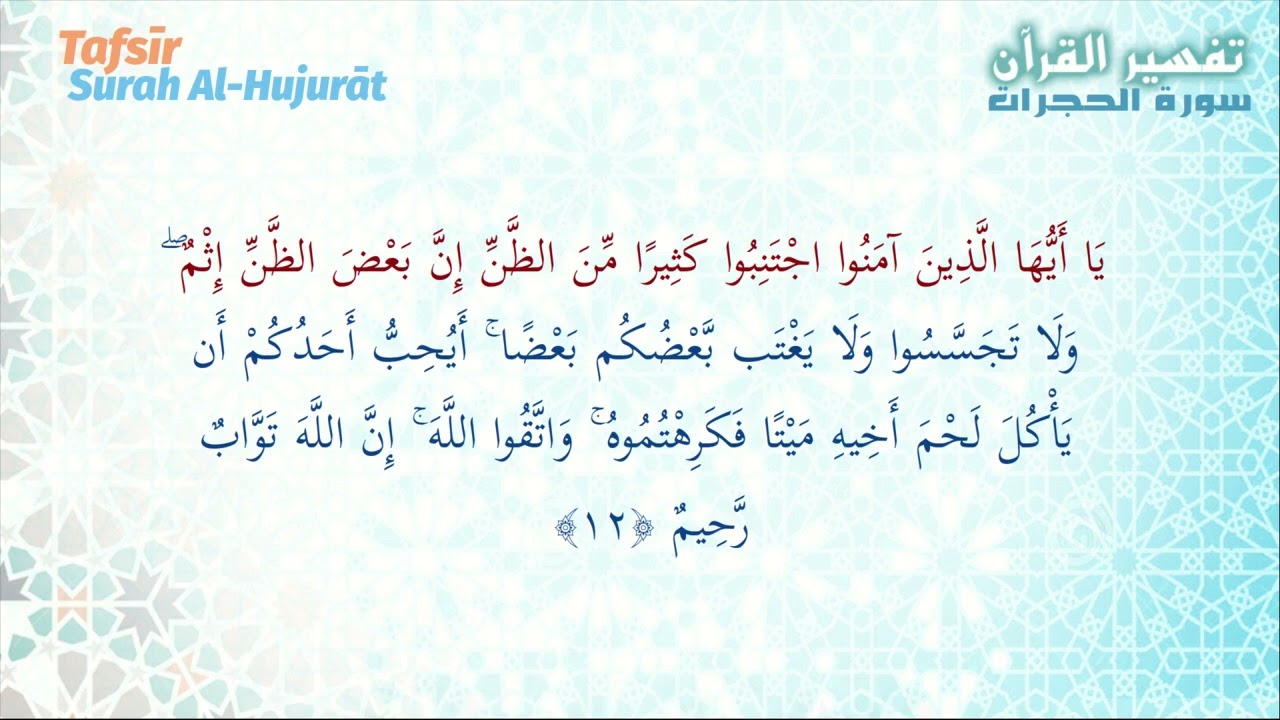 Tafsīr
Surah Al-Hujurāt
تفسير القرآن
سورة الحجرات
يَا أَيُّهَا الَّذِينَ آمَنُوا اجْتَنِبُوا كَثِيرًا مِّنَ الظَّنِّ إِنَّ بَعْضَ الظَّنِّ إِثْمٌ ۖ
وَلَا تَجَسَّسُوا وَلَا يَغْتَب بَّعْضُكُم بَعْضًا ۚ أَيُحِبُّ أَحَدُكُمْ أَن
يَأْكُلَ لَحْمَ أَخِيهِ مَيْتًا فَكَرِهْتُمُوهُ ۚ وَاتَّقُوا اللَّهَ ۚ إِنَّ اللَّهَ تَوَّابٌ
رَّحِيمٌ ﴿١٢﴾